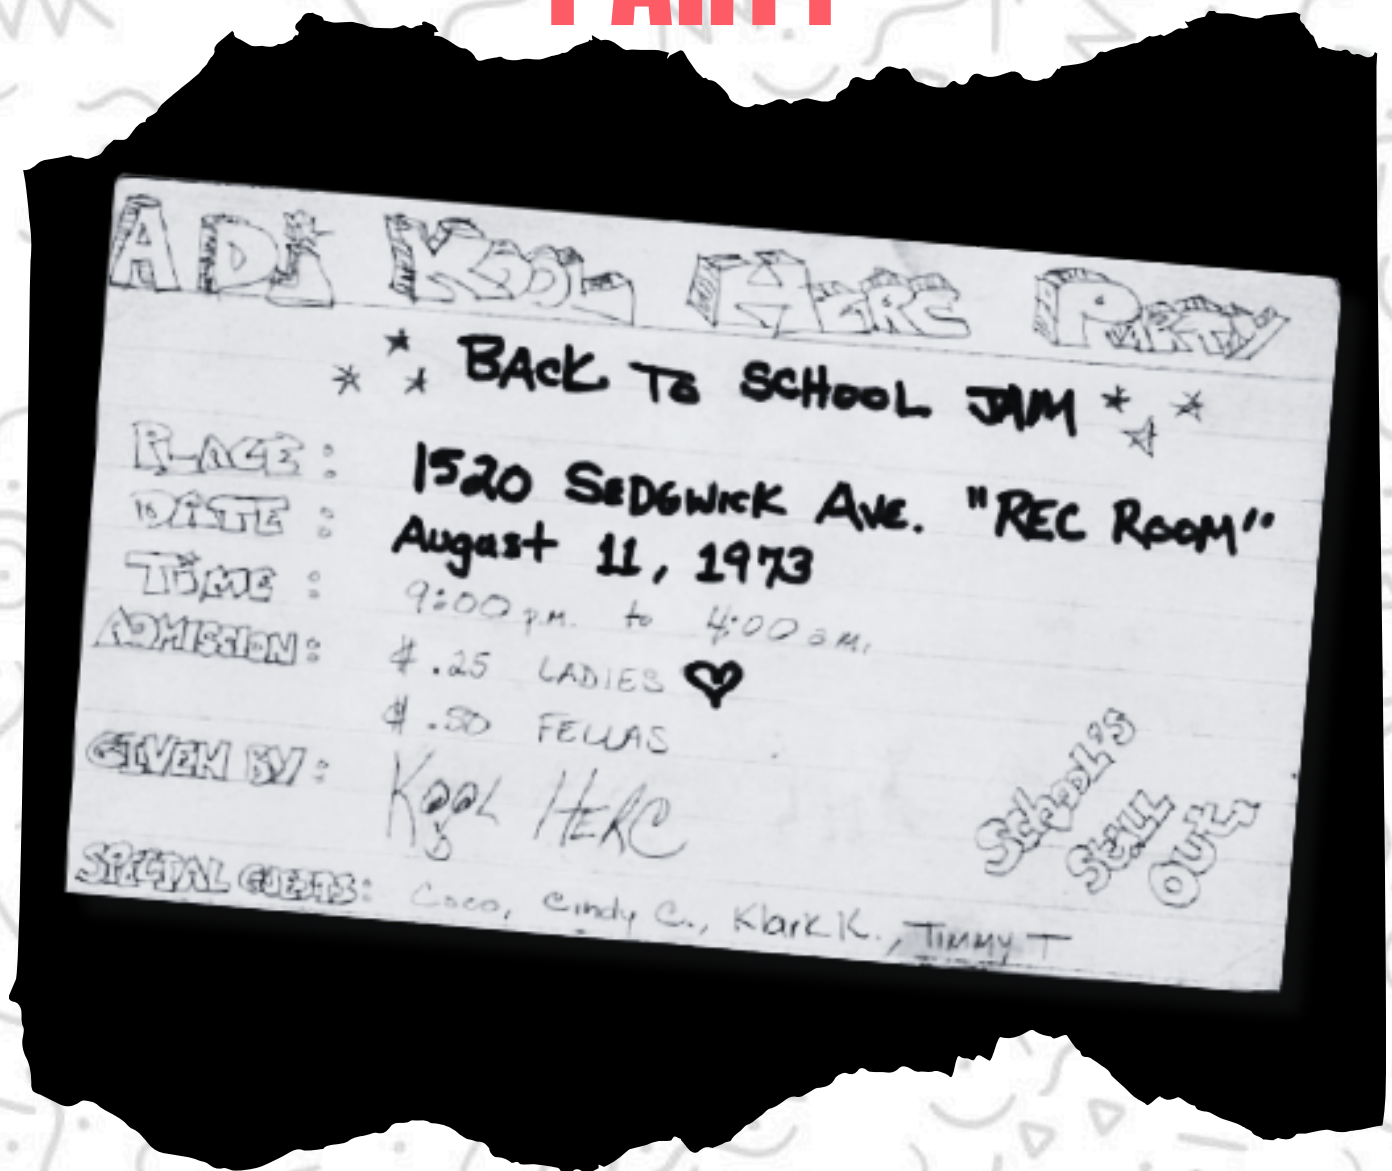 PARTY
A DJ KOOL HERC PARTY
BACK TO SCHOOL JAM
PLACE: 1520 SEDGWICK AVE. "REC ROOM"
DATE: August 11, 1973
TIME: 9:00 p.m. to 4:00 a.m.
ADMISSION: $.25 LADIES
$.50 FELLAS
GIVEN BY: KOOL HERC
SPECIAL GUESTS: Coco, Cindy C., Klark K., TIMMY T
SCHOOL'S
STILL
OUT